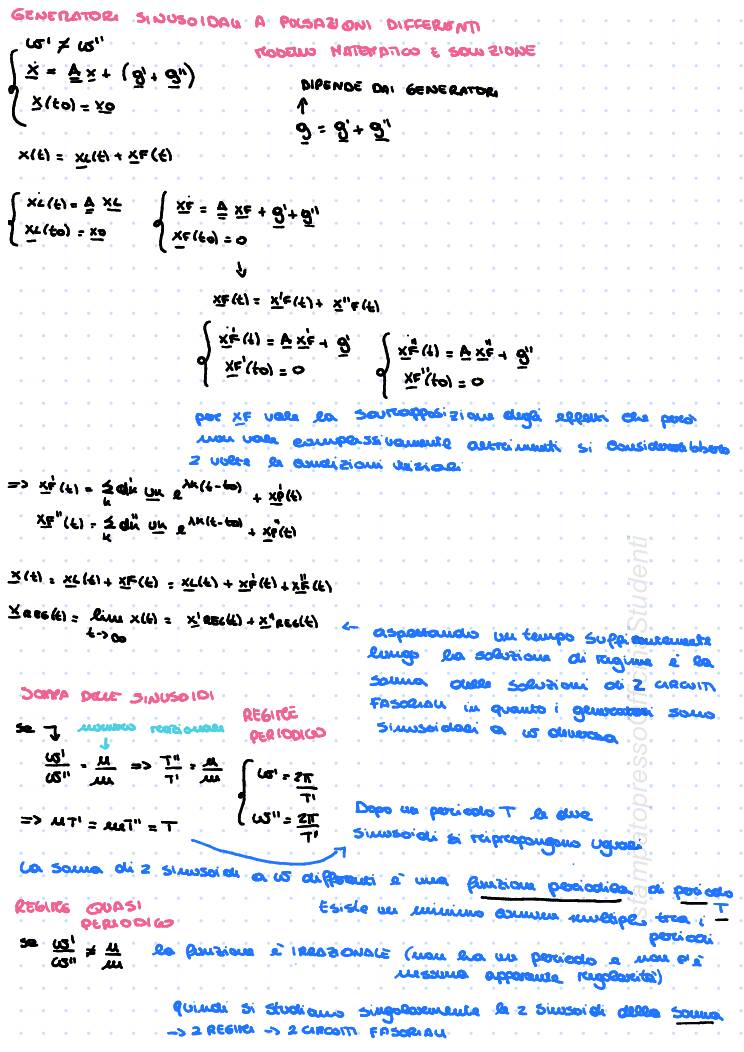 GENERATORI SINUSOIDALI A PULSAZIONI DIFFERENTI
ω' ≠ ω''
MODELLO MATEMATICO E SOLUZIONE
ẋ = A x + (g' + g'')
x(t0) = x0
DIPENDE DAI GENERATORI
↑
g = g' + g''
x(t) = xL(t) + xF(t)
ẋL(t) = A xL
xL(t0) = x0
ẋF = A xF + g' + g''
xF(t0) = 0
↓
xF(t) = x'F(t) + x''F(t)
ẋF'(t) = A xF' + g'
xF'(t0) = 0
ẋF''(t) = A xF'' + g''
xF''(t0) = 0
per xF vale la sovrapposizione degli effetti che però
non vale complessivamente altrimenti si considererebbero
2 volte le condizioni iniziali
=> xF'(t) = Σk dk' uk e^λk(t-t0) + xp'(t)
xF''(t) = Σk dk'' uk e^λk(t-t0) + xp''(t)
x(t) = xL(t) + xF(t) = xL(t) + xF'(t) + xF''(t)
xREG(t) = lim t→∞ x(t) = x'REG(t) + x''REG(t)
← aspettando un tempo sufficientemente
lungo la soluzione di regime è la
somma delle soluzioni di 2 CIRCUITI
FASORIALI in quanto i generatori sono
sinusoidali a ω diversa
SOMMA DELLE SINUSOIDI
se numero razionale
ω'/ω'' = n/m => T''/T' = n/m
REGIME
PERIODICO
ω' = 2π/T'
ω'' = 2π/T'
=> nT' = mT'' = T
Dopo un periodo T le due
sinusoidi si ripropongono uguali
La somma di 2 sinusoidi a ω differenti è una funzione periodica di periodo T
Esiste un minimo comune multiplo tra i
periodi
REGIME QUASI
PERIODICO
se ω'/ω'' ≠ n/m la funzione è IRRAZIONALE (non ha un periodo e non c'è
nessuna apparente regolarità)
quindi si studiano singolarmente le 2 sinusoidi della somma
→ 2 REGIMI → 2 CIRCUITI FASORIALI